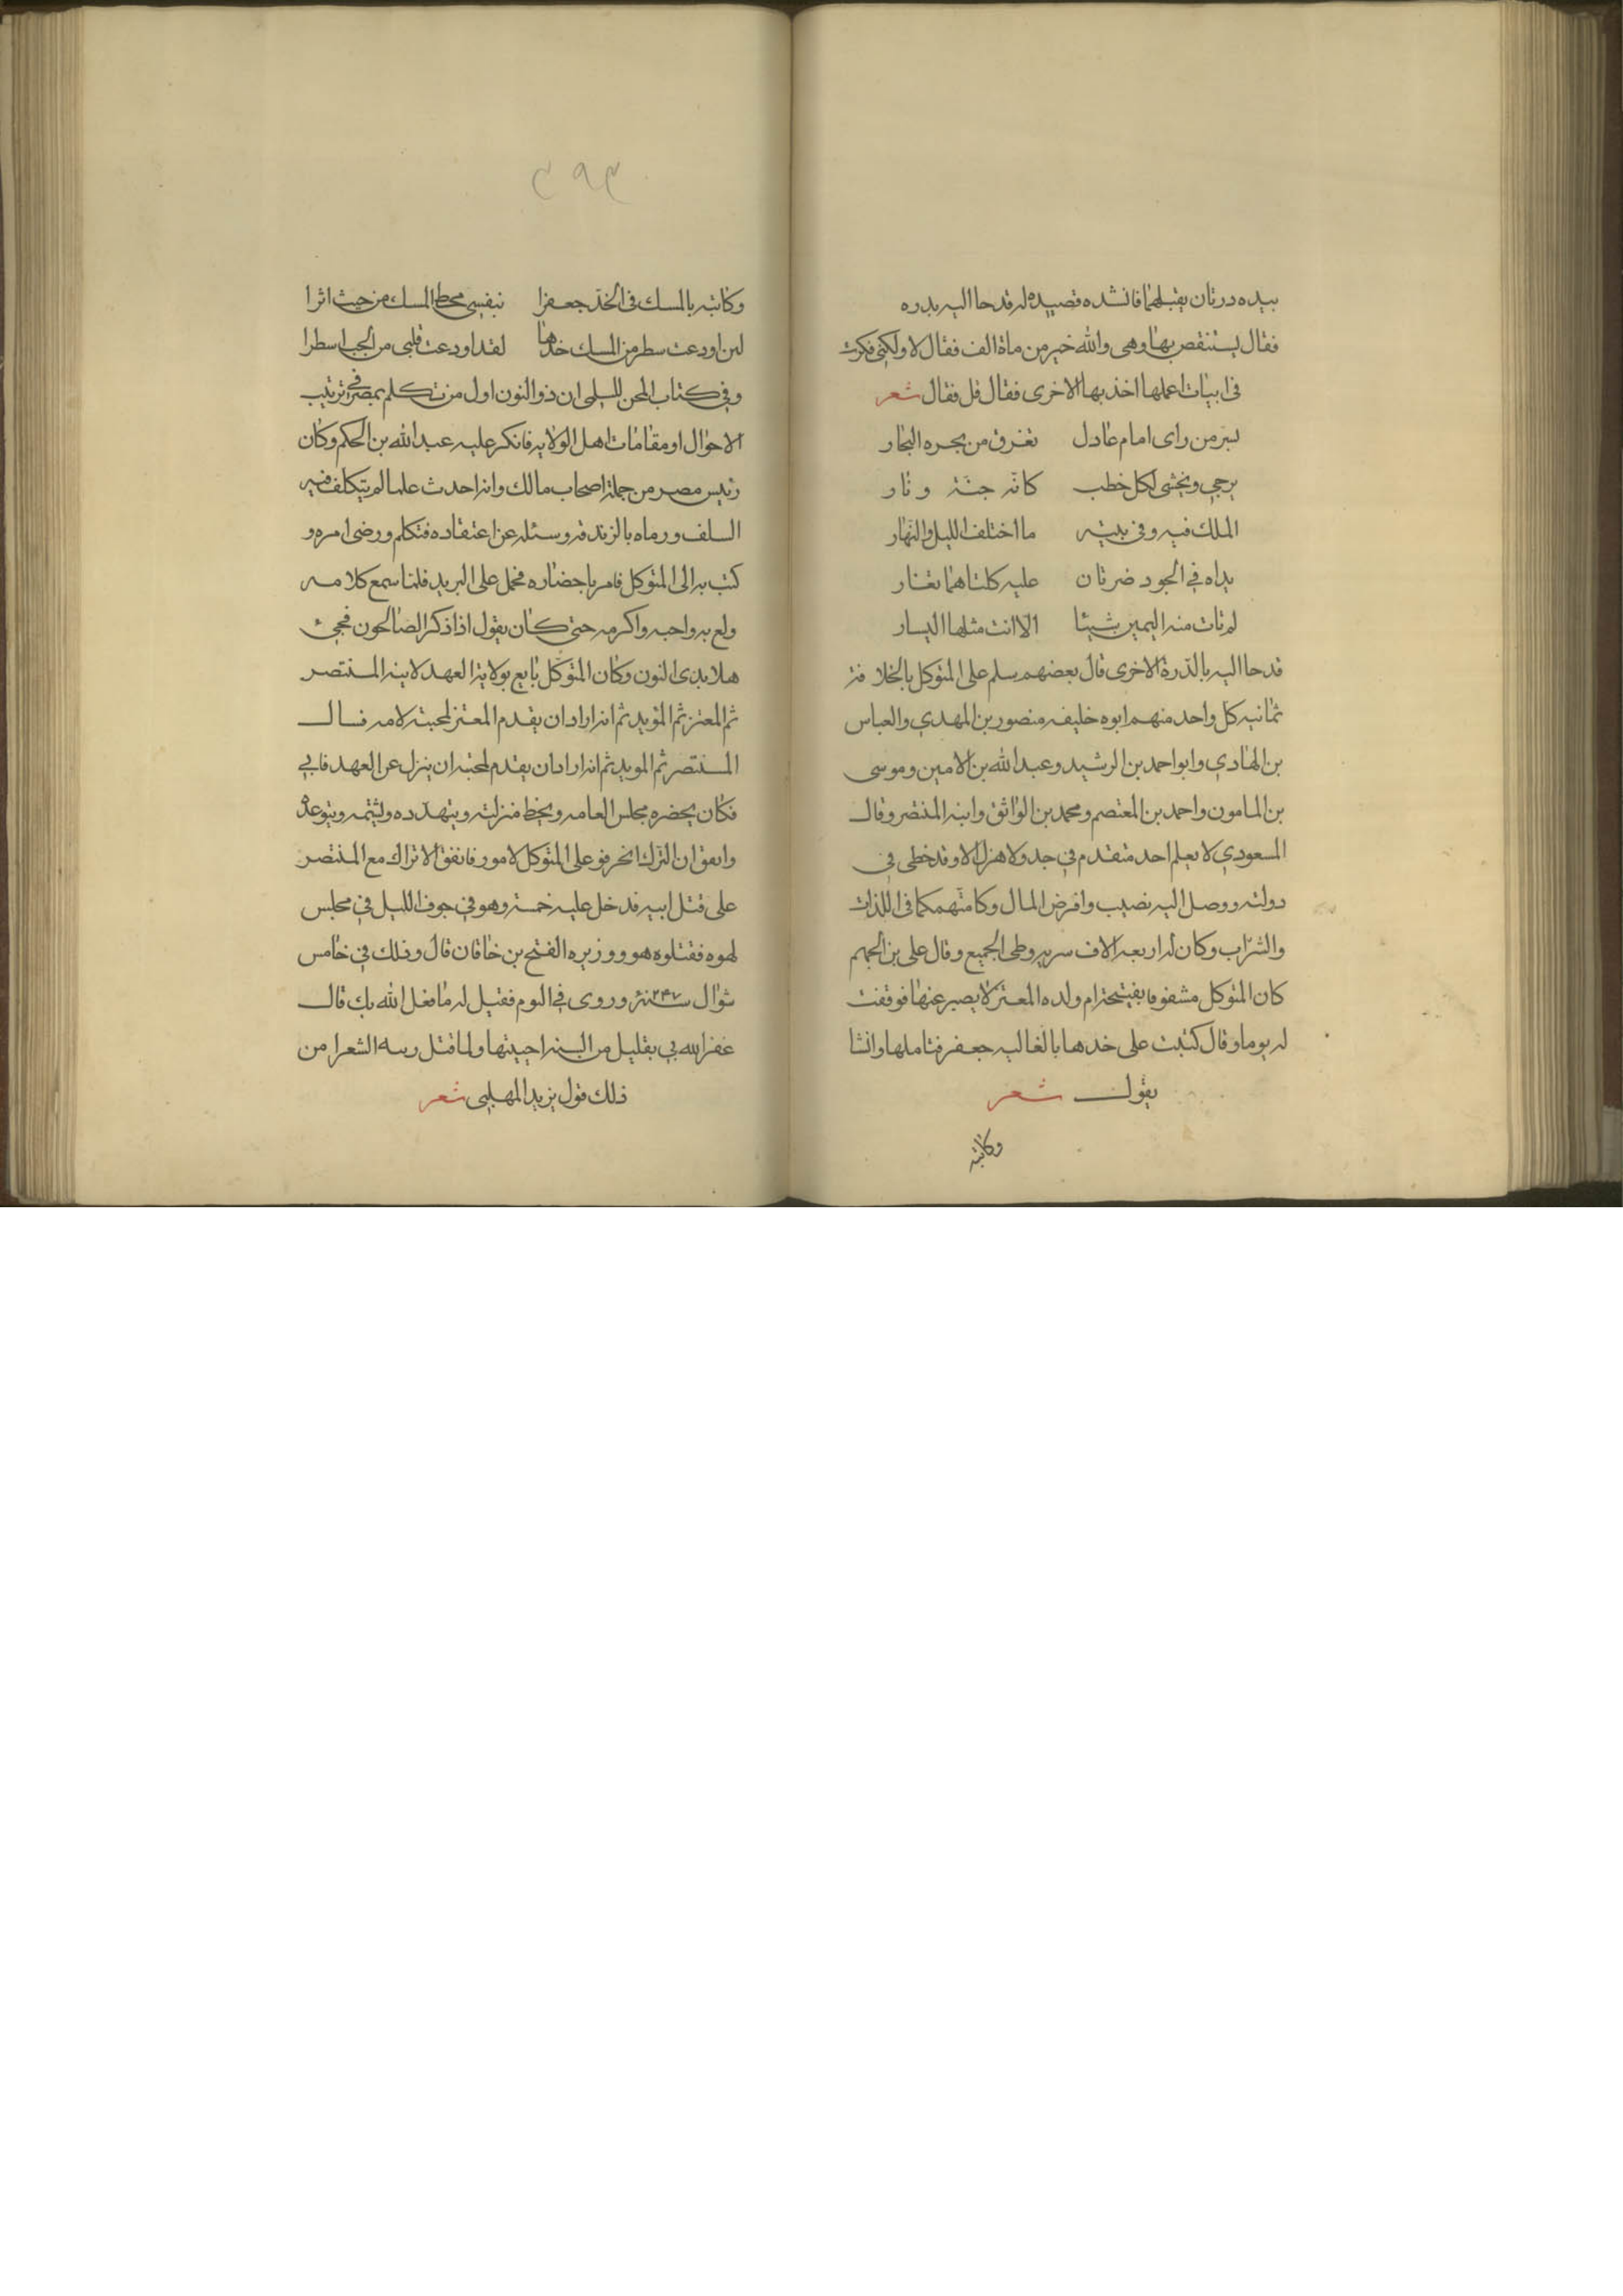 بيده درتان يقبلهما فانشده قصيده له قدحا اليه بدره
فقال يستنقص بها وهى والله خير من ماة الف فقال لا ولكنى فكرت
فى ابيات اعملها اخذ بها الاخرى فقال قل فقال شعر
بسر من راى امام عادل تغرق من بحره البحار
يرجى ويخشى لكل خطب كانه جنة ونار
الملك فيه وفى بنيه ما اختلف الليل والنهار
يداه في الجود ضرتان عليه كلتاهما تغار
لم تات منه اليمين شيئا الا اتت مثلها اليسار
قدحا اليه بالدرة الاخرى قال بعضهم سلم على المتوكل بالخلافة
ثمانيه كل واحد منهم ابوه خليفه منصور بن المهدي والعباس
بن الهادي وابو احمد بن الرشيد وعبد الله بن الامين وموسى
بن المامون واحمد بن المعتصم ومحمد بن الواثق وابنه المنتصر وقال
المسعودي لا يعلم احد متقدم في جد ولا هزل الا وقد خطى في
دولته ووصل اليه نصيب وافر من المال وكا منهمكا فى اللذات
والشراب وكان له اربعه الاف سريه وطى الجميع وقال على بن الجهم
كان المتوكل مشغوفا بقبيحة ام ولده المعتز لا يصبر عنها فوقفت
له يوما وقال كتبت على خدها بالغاليه جعفر فتاملها وانشا
يقول شعر
وكاتبه
٣٩٣
وكاتبه بالمسك فى الخد جعفرا بنفسى محط المسك من حيث اثرا
لىن اودعت سطر من المسك خدها لقد اودعت قلبى من الحب اسطرا
وفي كتاب المحن للسلمى ان ذو النون اول من تكلم بمصر في ترتيب
الاحوال او مقامات اهل الولايه فانكر عليه عبد الله بن الحكم وكان
رئيس مصر من جملة اصحاب مالك وانه احدث علما لم يتكلف فيه
السلف ورماه بالزندقه وسئله عن اعتقاده فتكلم ورضى امره و
كتب به الى المتوكل فامر باحضاره فحمل على البريد فلما سمع كلامه
ولع به واحبه واكرمه حتى كان يقول اذا ذكر الصالحون فحىء
هلا بذى النون وكان المتوكل بايع بولاية العهد لابنه المنتصر
ثم المعتز ثم المؤيد ثم انه اراد ان يقدم المعتز لمحبته لامه فسال
المنتصر ثم المويد ثم انه اراد ان يقدم لمحبته ان ينزل عن العهد فابي
فكان يحضره مجلس العامه ويحط منزلته ويتهدده ويشتمه ويتوعده
واتفق ان الترك انحرفو على المتوكل لامور فاتفق الاتراك مع المنتصر
على قتل ابيه فدخل عليه خمسة وهو في جوف الليل في مجلس
لهوه فقتلوه هو ووزيره الفتح بن خاقان قال وذلك في خامس
شوال سنة ٢٤٧ وروى في النوم فقيل له ما فعل الله بك قال
غفر الله بي بقليل من السنه احييتها ولما قتل رىىه الشعرا من
ذلك قول يزيد المهلبى شعر